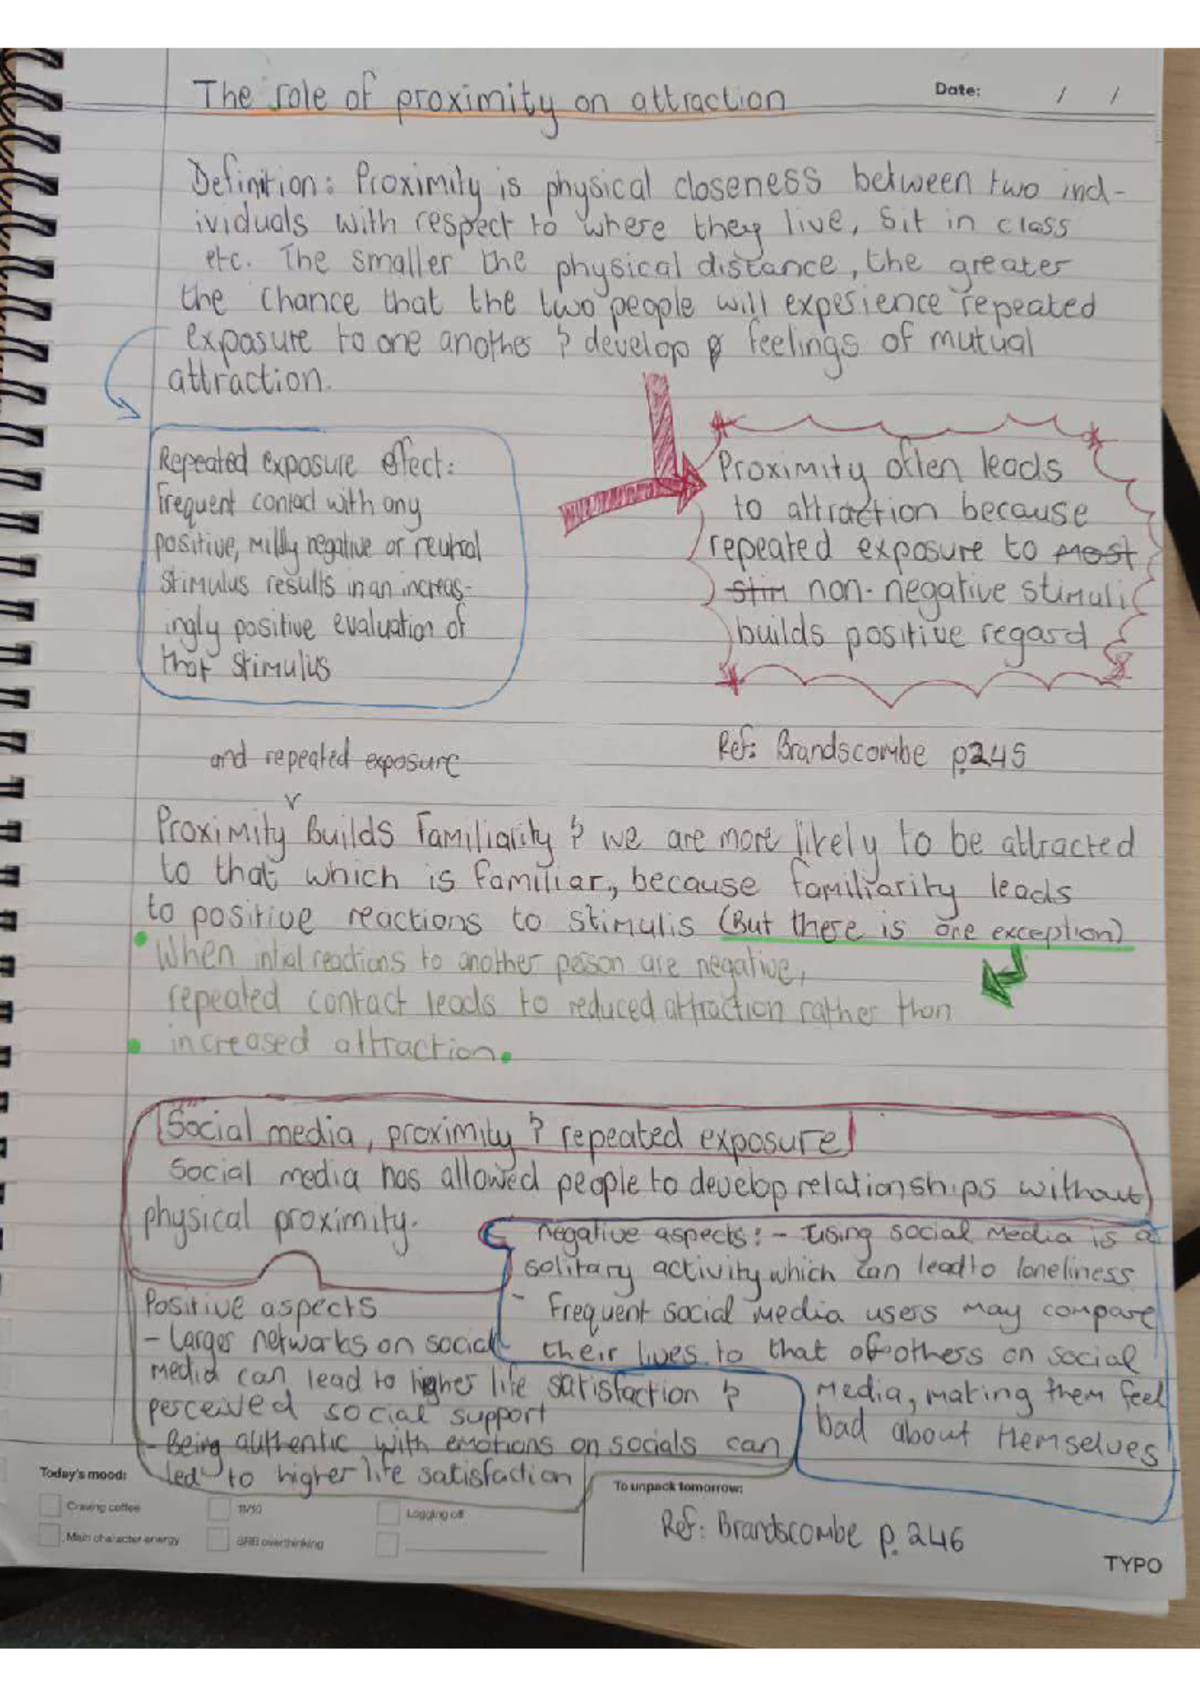 The role of proximity on attraction
Date: / /
Definition: Proximity is physical closeness between two ind-
ividuals with respect to where they live, sit in class
etc. The smaller the physical distance, the greater
the chance that the two people will experience repeated
exposure to one another & develop feelings of mutual
attraction.
Repeated exposure effect:
Frequent contact with any
positive, mildly negative or neutral
stimulus results in an increas-
ingly positive evaluation of
that stimulus
Proximity often leads
to attraction because
repeated exposure to most
stim non-negative stimuli
builds positive regard
Ref: Brandscombe p.245
and repeated exposure
Proximity builds familiarity & we are more likely to be attracted
to that which is familiar, because familiarity leads
to positive reactions to stimulis (But there is one exception)
When intial reactions to another person are negative,
repeated contact leads to reduced attraction rather than
increased attraction.
Social media, proximity & repeated exposure
Social media has allowed people to develop relationships without
physical proximity.
Negative aspects: - Using social media is a
solitary activity which can lead to loneliness
- Frequent social media users may compare
their lives to that of others on social
media, making them feel
bad about themselves
Positive aspects
- Larger networks on social
media can lead to higher life satisfaction &
perceived social support
- Being authentic with emotions on socials can
led to higher life satisfaction
Today's mood:
Craving coffee
11/10
Logging off
Main character energy
BRB overthinking
To unpack tomorrow:
Ref: Brandscombe p. 246
TYPO